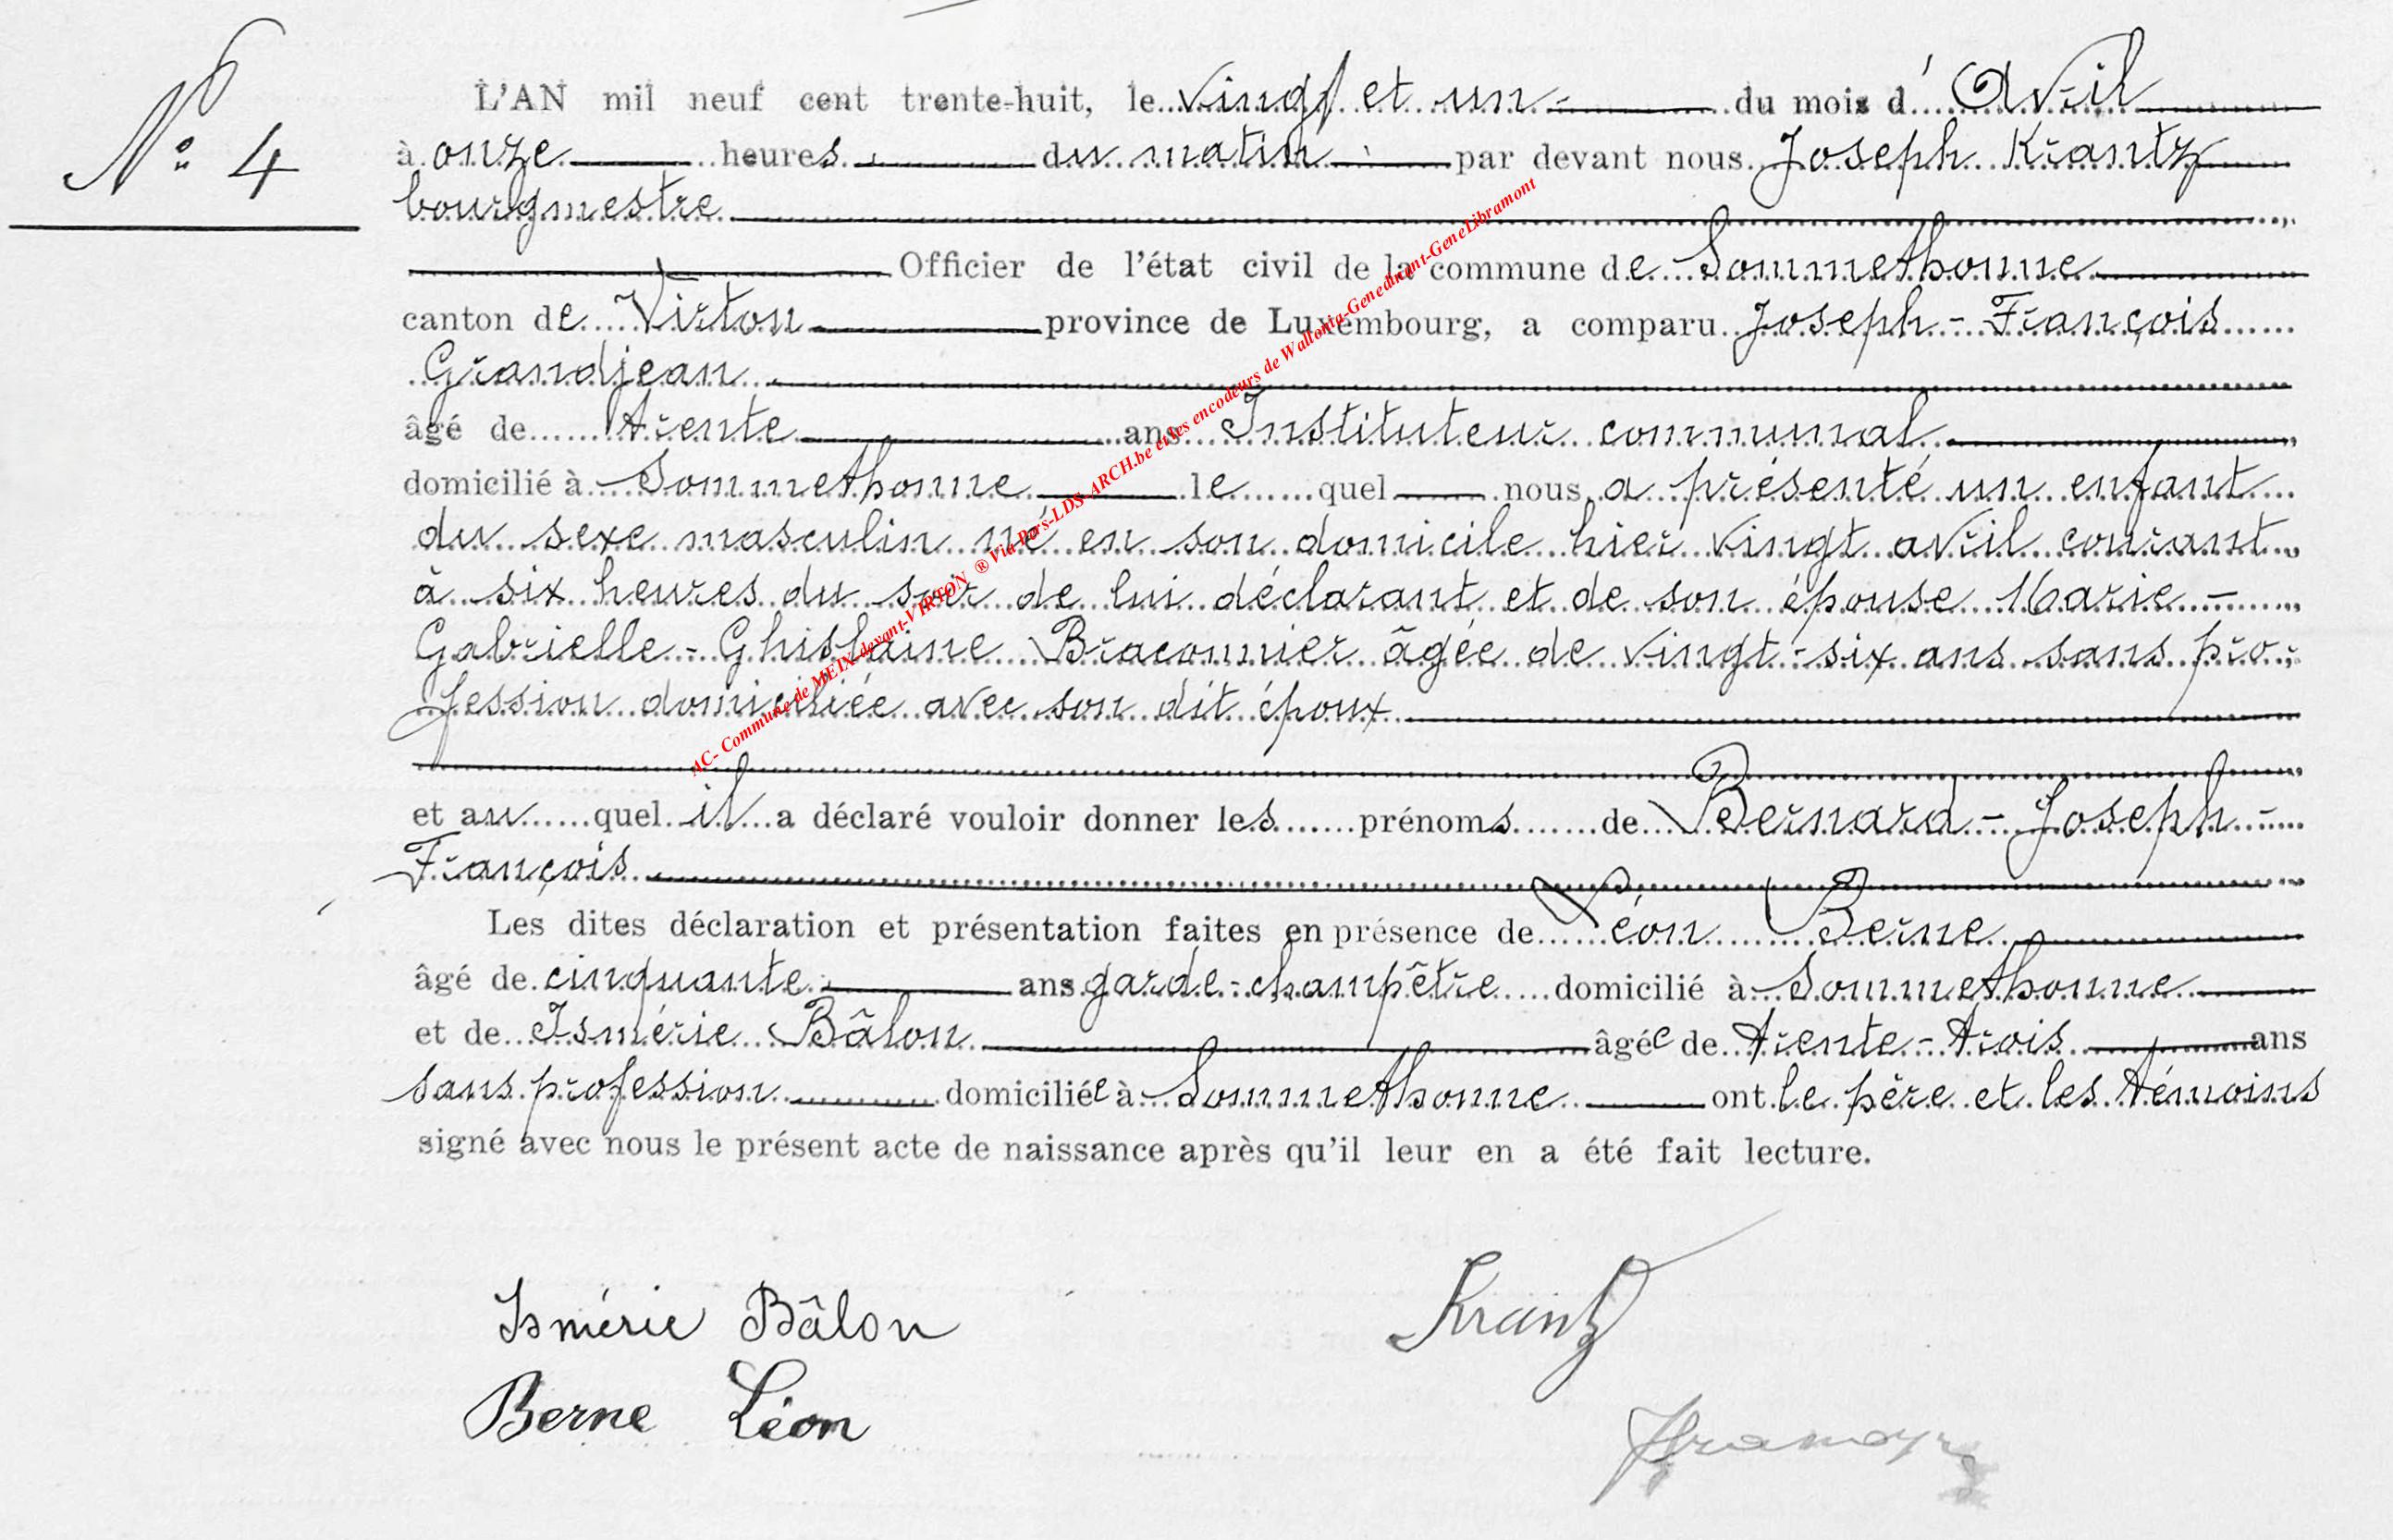 Nº 4
L'AN mil neuf cent trente-huit, le vingt et un du mois d'Avril
à onze heures du matin par devant nous Joseph Krantz
bourgmestre
Officier de l'état civil de la commune de Sommethonne
canton de Virton province de Luxembourg, a comparu Joseph-François
Grandjean
âgé de trente ans Instituteur communal
domicilié à Sommethonne lequel nous a présenté un enfant
du sexe masculin né en son domicile hier vingt avril courant
à six heures du soir de lui déclarant et de son épouse Marie-
Gabrielle-Ghislaine Braconnier âgée de vingt-six ans sans pro-
fession domiciliée avec son dit époux
et auquel il a déclaré vouloir donner les prénoms de Bernard-Joseph-
François
Les dites déclaration et présentation faites en présence de Léon Berne
âgé de cinquante ans garde-champêtre domicilié à Sommethonne
et de Ismérie Bâlon âgée de trente-trois ans
sans profession domiciliée à Sommethonne ont le père et les témoins
signé avec nous le présent acte de naissance après qu'il leur en a été fait lecture.
Ismérie Bâlon
Krantz
Berne Léon
AC- Commune de MEIX-devant-VIRTON ® Via Pers-LDS-ARCH.be et les encodeurs de Wallonia-Genedinant-GeneLibramont